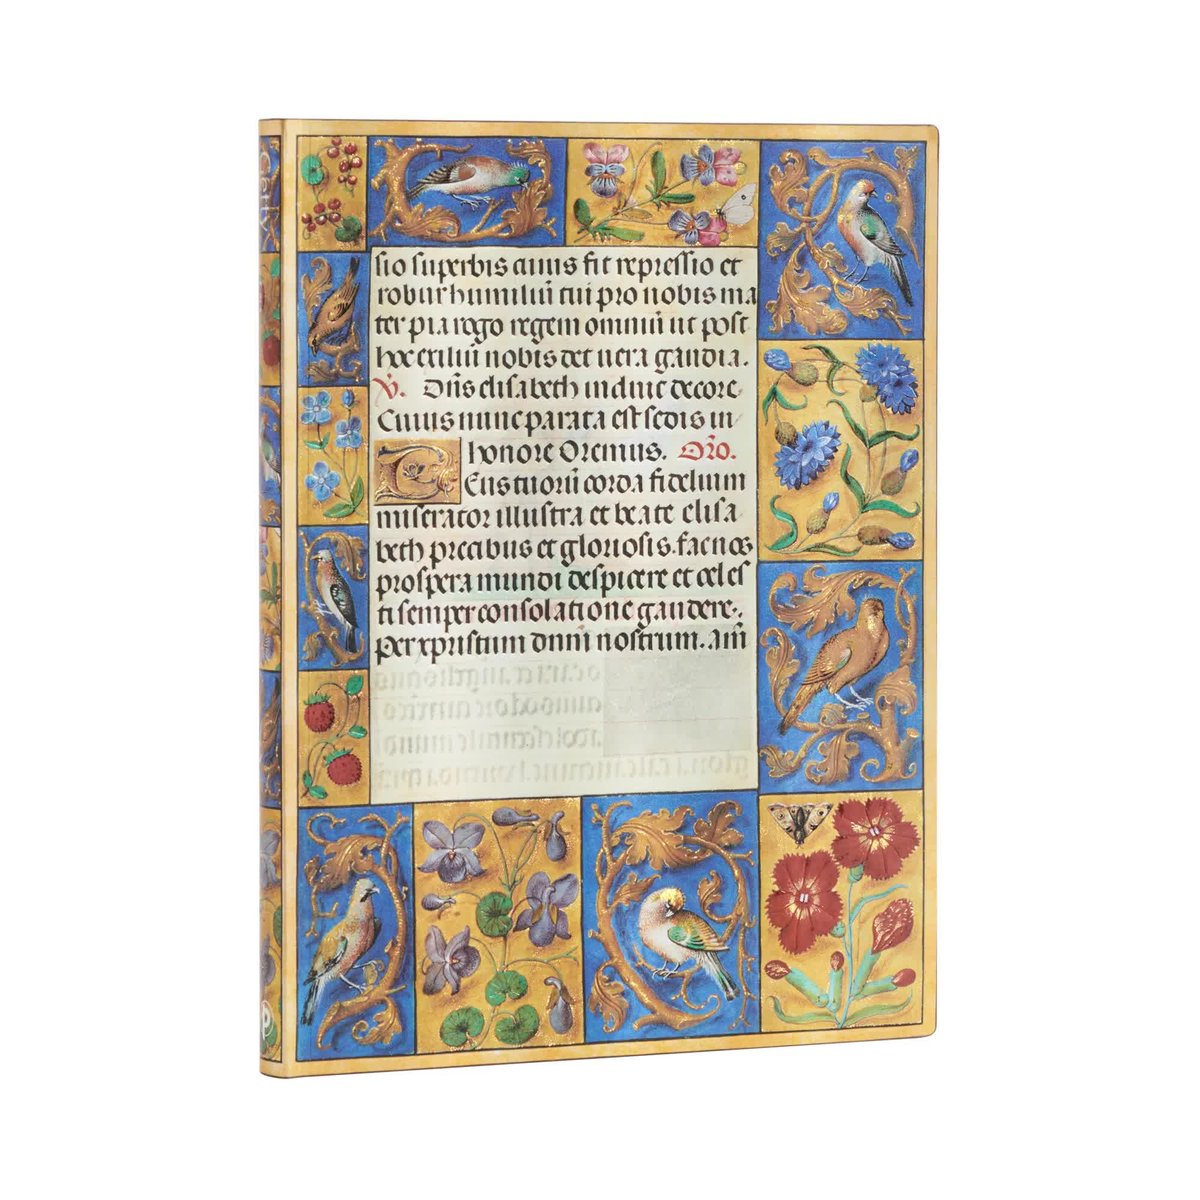 sio superbis cuius fit repressio et
robur humiliū cui pro nobis ma
ter pia rogo regem omniū ut post
hoc exiliū nobis det uera gaudia.
V. Dñs elisabeth induit decore
Cuius nunc parata est sedis in
honore Oremus. Orõ.
Deus tuorū corda fidelium
miserator illustra et beate elisa
beth precibus et gloriosis. fac nos
prospera mundi despicere et celes
ti semper consolatione gaudere.
Per xpristum dnm̄ nostrum. am̄